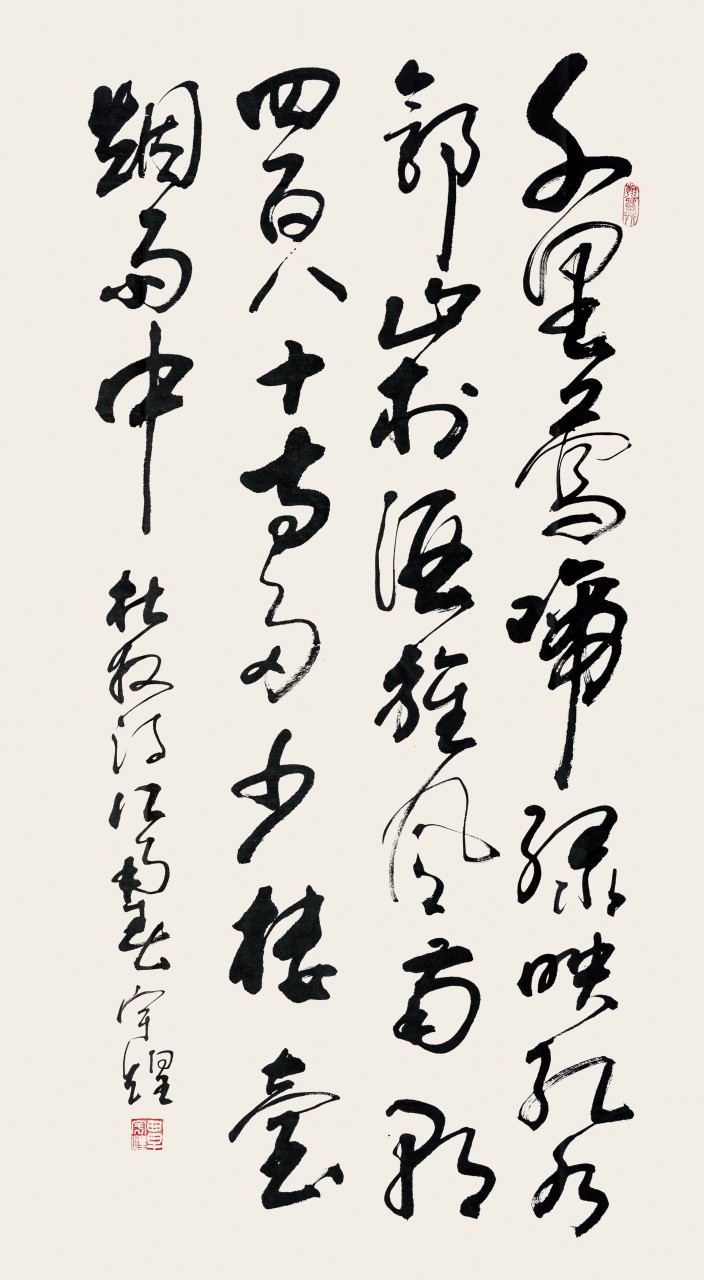 千里鶯啼緑映紅水
郭山村酒旗風南朝
四百八十寺多少樓臺
烟雨中 杜牧詩江南春 宇